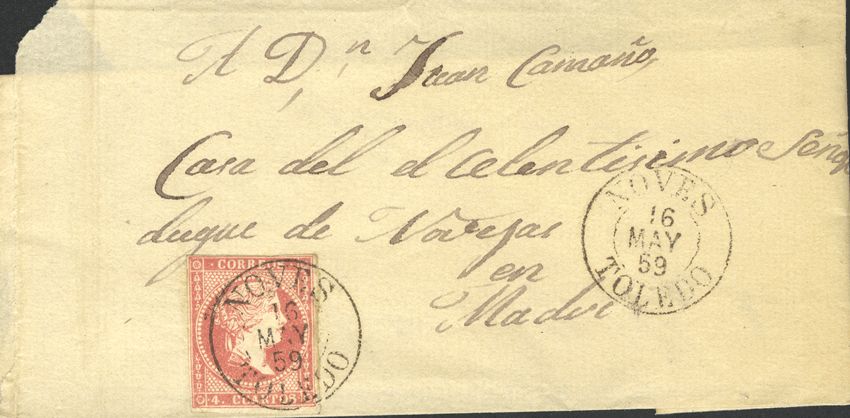 A Dⁿ Juan Camaño
Casa del elcelentisimo Señor
duque de Novejas
en
Madri
NOVES
16
MAY
59
TOLEDO
CORREOS
NOVES
16
MAY
59
TOLEDO
4. CUARTOS